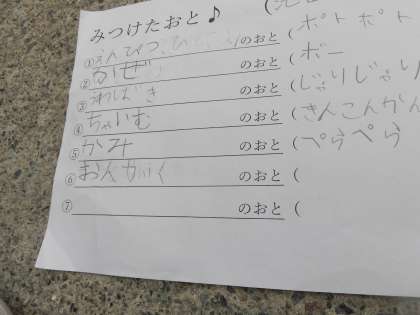 みつけたおと♪
①えんぴつ のおと(ポトポト
② かぜ のおと(ボー
③ のおと(じゃりじゃり
④ちゃいむ のおと(きんこんかん
⑤かみ のおと(ぺらぺら
⑥おんがく のおと(
⑦ のおと(